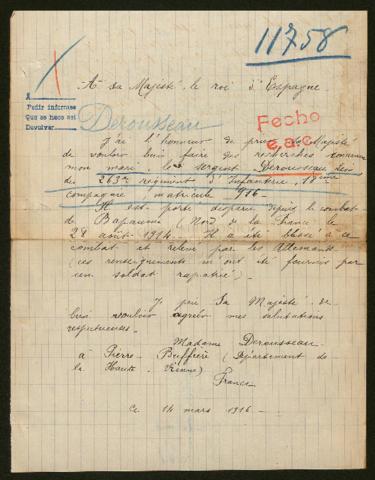 11758
A Sa Majesté le roi d'Espagne
A
Pedir informes
Que se hace así
Devolver
Derousseau
Fecho
e.a.c.
J'ai l'honneur de prier sa Majesté
de vouloir bien faire des recherches concernant
mon mari le sergent Derousseau Léon
du 263me régiment d'Infanterie, 18eme
compagnie matricule 916 -
Il est porté disparu depuis le combat
de Bapaume (Nord de la France) le
28 août 1914. il a été blessé à ce
combat et relevé par les Allemands
(ces renseignements m'ont été fournis par
un soldat rapatrié)
Je prie Sa Majesté de
bien vouloir agréer mes salutations
respectueuses.
Madame Derousseau
à Pierre-Buffière (Département de
la Haute-Vienne)
France
Ce 14 mars 1916 -